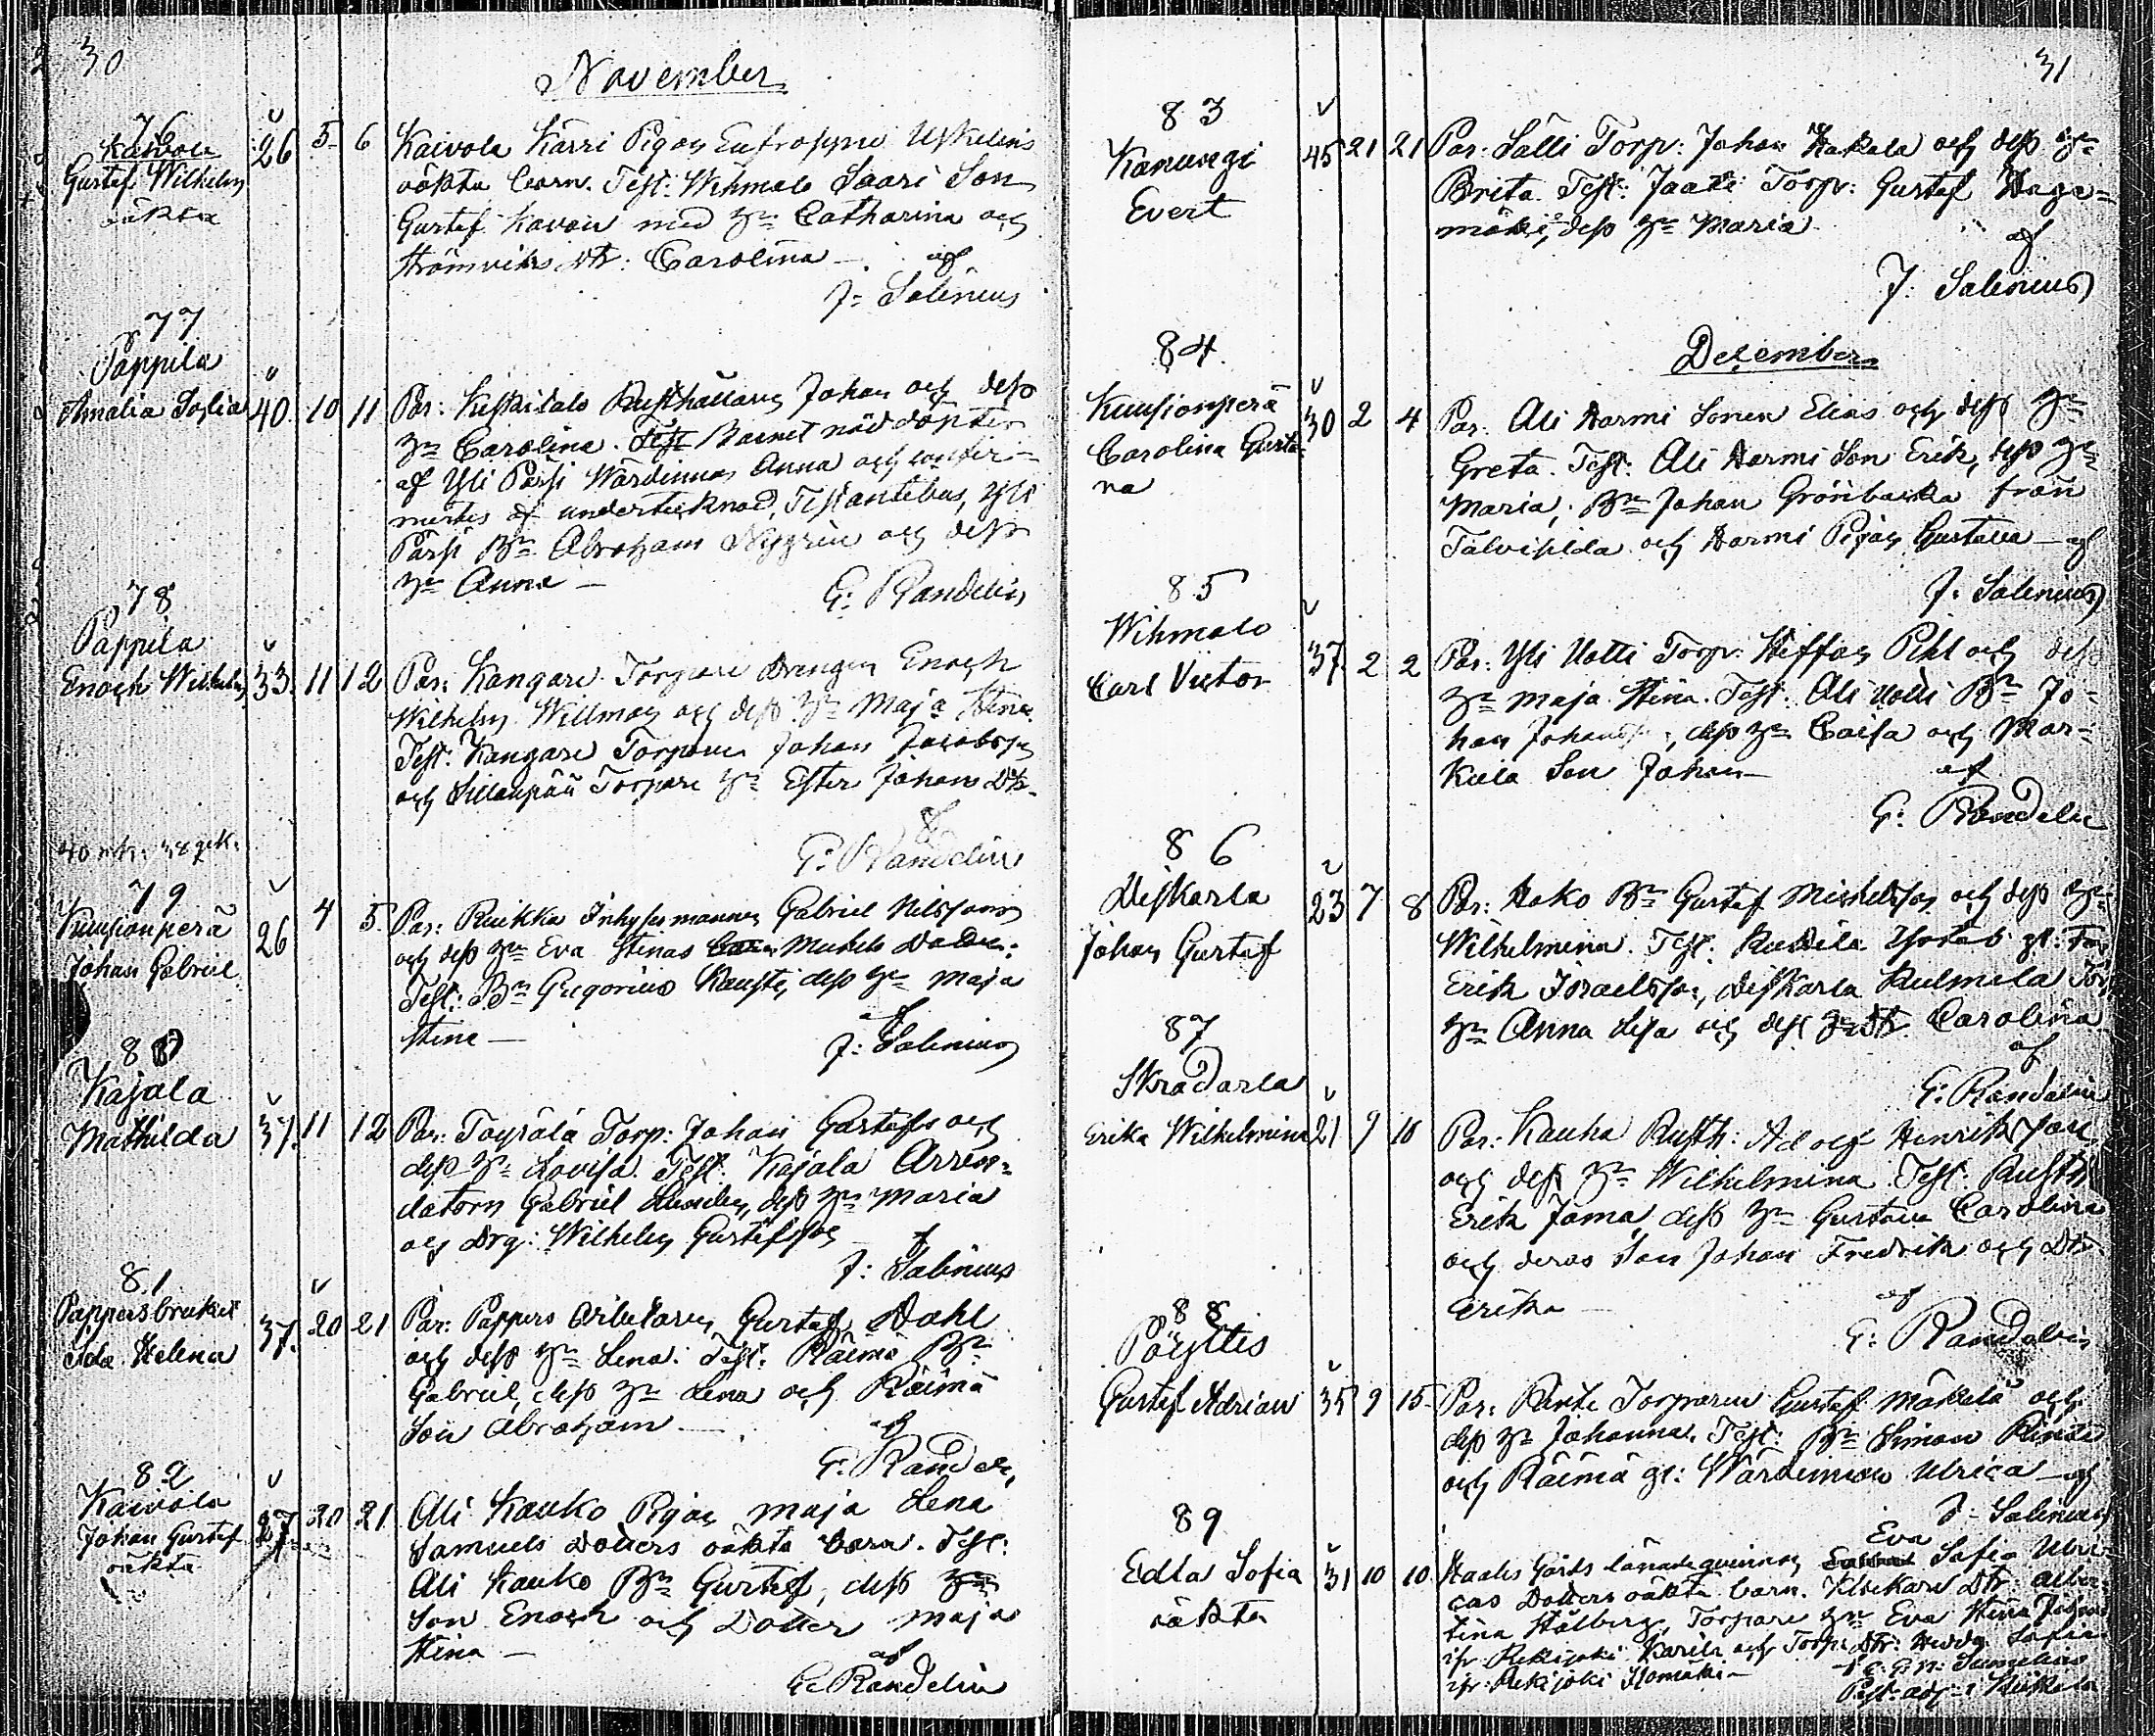 30
November
76
Kaivola
Gustaf Wilhelm
oäkta
26 5 6
Kaivola Karri Pigan Eufrosyne Uskelins
oäkta barn. Test: Wihmalo Saari Son
Gustaf med Hu Catharina och
Strömviks Dtr: Carolina – af
J: Salenius
77
Pappila
Amalia Sofia
40 10 11
Par: Keskitalo Rusthållaren Johan och dess
Hu Carolina. Test Barnet nöddöpten
af Yli Pärsi Wärdinnan Anna och confir-
mertes af undertecknad, Testantibus, Yli
Pärsi Bn Abraham Nygren och dess
Hu Anna –
G: Randelin
78
Pappila
Enoch Wilhelm
33 11 12
Par: Kangare Torpare Drengen Enoch
Wilhelm Willman och dess Hu Maja Stina.
Test: Kangare Torparen Johan Jacobsson
och Sillanpää Torpare Hu Ester Johans Dtr.
af
G: Randelin
79
Kuusionperä
Johan Gabriel
26 4 5
Par: Ruikka Inhysesmannen Gabriel Nilsson
och dess Hu Eva Stinas Michels Dotter:
Test: Bn Gregorius Kauste, dess Hu Maja
Stina –
af
J: Salenius
80
Kajala
Mathilda
37 11 12
Par: Töyrälä Torp: Johan Gustafs och
dess Hu Lovisa. Test: Kajala Arren-
datorn Gabriel dess Hu Maria
och Drg: Wilhelm Gustafsson
af
J: Salenius
81
Pappersbruket
Ida Helena
37 20 21
Par: Pappers Arbetaren Gustaf Dahl
och dess Hu Lena. Test: Räimä Bn
Gabriel, dess Hu Lena och Räimä
Son Abraham –
af
G: Randeli
82
Kaivola
Johan Gustaf
oäkta
27 20 21
Ali Kauko Pigan Maja Lena
Samuels Dotters oäkta barn. Test:
Ali Kauko Bn Gustaf, dess Hu
Son Enoch och Dotter Maja
Stina –
af
G: Randelin
31
83
Kanungi
Evert
45 21 21
Par: Sälli Torp: Johan Hakala och dess Hu
Brita. Test: Jaati Torp: Gustaf Haga-
mäki, dess Hu Maria
af
J: Salenius
December
84
Kuusionperä
Carolina Gusta-
va
30 2 4
Par: Ali Hormi Sonen Elias och dess Hu
Greta. Test: Ali Hormi Son Erik, dess Hu
Maria, Bn Johan Grönbacka från
Talvisilda och Hormi Pigan Gustava – af
J: Salenius
85
Wihmalo
Carl Victor
37 2 2
Par: Yli Uotti Torp: Staffan Pihl och dess
Hu Maja Stina. Test: Ali Uotti Bn Jo-
han Johansson, dess Hu Caisa och Mar-
kula Son Johan –
af
G: Randelin
86
Diskarla
Johan Gustaf
23 7 8
Par: Hoko Bn Gustaf Michelsson och dess Hu
Wilhelmina. Test:
Erik Israelsson, Diskarla Kulmala Tor
Hu Anna Lisa och dess Dtr Carolina
af
G: Randelin
87
Skradarla
Erika Wilhelmina
21 9 10
Par: Kauha Rusth: Adolf Henriksson
och dess Hu Wilhelmina. Test: Rusth
Erik Jama, dess Hu Gustava Carolina
och deras Son Johan Fredrik och Dtr
Erika –
af
G: Randelin
88
Pöytis
Gustaf Adrian
35 9 15
Par: Torparen Gustaf Mäkelä och
dess Hu Johanna. Test: Bn Simon
och Räimä gl: Wärdinnan Ulrica – af
J: Salenius
89
Edla Sofia
oäkta
31 10 10
Eva
Gårds Sofia Ulri-
cas Dotters oäkta barn. Dtr: Alber-
tina Stålberg, Torpare Hu Eva Stina
ifr: Rekijoki Karila och Torp: Dtr: Hedda Sofia
ifr: Rekijoki –
Past: adj: i